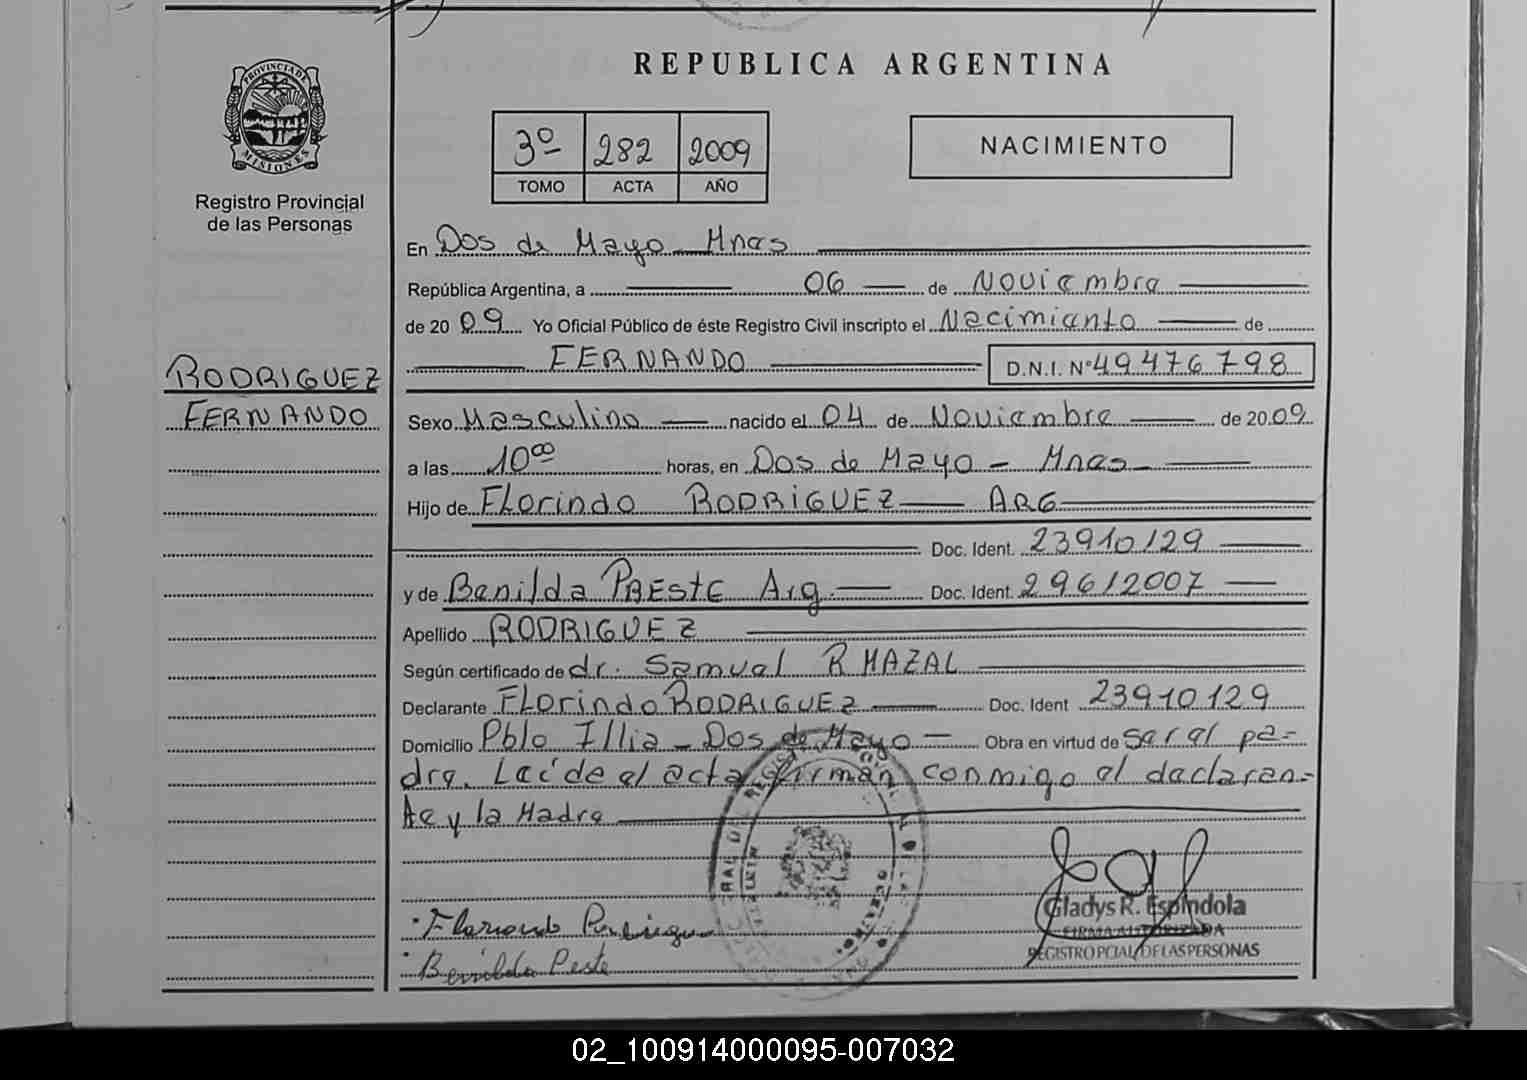 REPUBLICA ARGENTINA
PROVINCIA DE MISIONES
Registro Provincial
de las Personas
3º 282 2009
TOMO ACTA AÑO
NACIMIENTO
En Dos de Mayo Mnes
República Argentina, a 06 de Noviembre
de 20 09 Yo Oficial Público de éste Registro Civil inscripto el Nacimiento de
FERNANDO D.N.I. Nº 49476798
RODRIGUEZ
FERNANDO
Sexo Masculino nacido el 04 de Noviembre de 20 09
a las 10 00 horas, en Dos de Mayo - Mnes
Hijo de Florindo RODRIGUEZ ARG
Doc. Ident. 23910129
y de Benilda PRESTE Arg. Doc. Ident. 29612007
Apellido RODRIGUEZ
Según certificado de dr. Samuel R MAZAL
Declarante Florindo RODRIGUEZ Doc. Ident 23910129
Domicilio Pblo Illia - Dos de Mayo - Obra en virtud de ser el pa-
dre. Leí de el acta firman conmigo el declaran-
te y la Madre
Gladys R. Espindola
FIRMA AUTORIZADA
REGISTRO PCIAL DE LAS PERSONAS
Benilda Peste
02_100914000095-007032